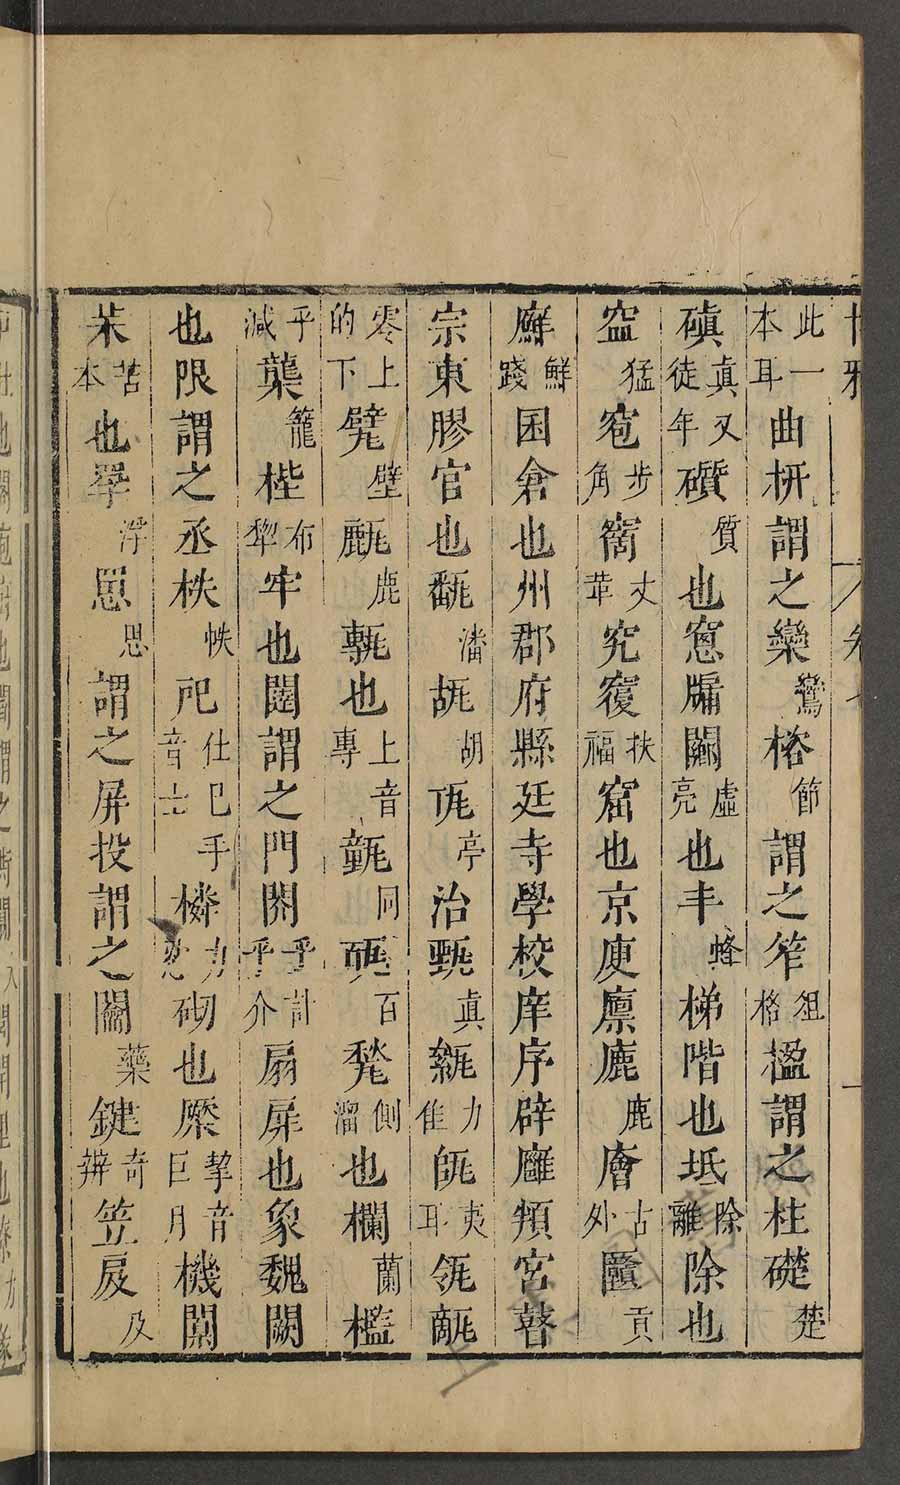 此一本耳曲枅謂之欒鸞㮞節謂之笮狙格楹謂之柱礎楚
磌真又徒年礩質也窻牖䦳虛亮也丰蜂梯階也坻除離除也
猛窇步角窬丈華究覆扶福窟也京庾廩鹿鹿廥古外匶貢
廯鮮踐囷倉也州郡府縣廷寺學校庠序辟廱頖宮瞽
宗東膠官也㽃潘瓳胡㼗亭治甄真㼍力隹瓵夷耳瓴甋
零上的下甓壁㼾鹿甎也上音專㼿同瓸百甃側溜也欄蘭檻
乎減櫳籠梐布犂牢也闔謂之門閞乎計乎介扇扉也象魏闕
也限謂之丞柣帙戺仕巳乎音士橉力忍砌也橜摯音巨月機闑
苦本也罦浮罳思謂之屏投謂之闟藥鍵奇辨笠扊及